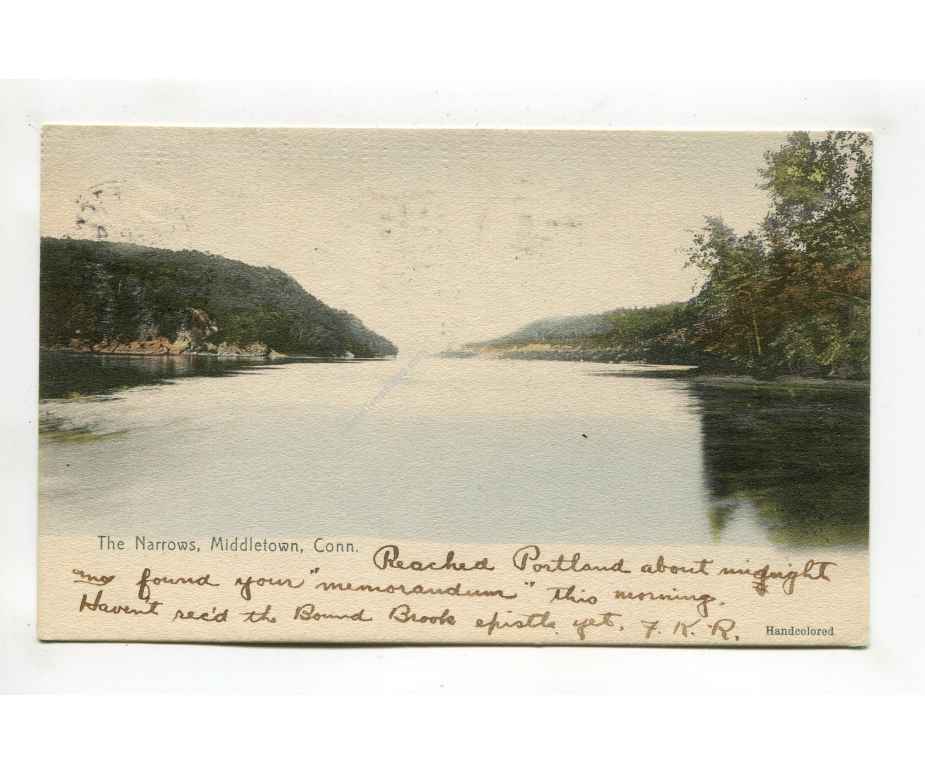 The Narrows, Middletown, Conn.
Reached Portland about midnight
and found your "memorandum" this morning.
Haven't rec'd the Bound Brook epistle yet. F. K. R.
Handcolored